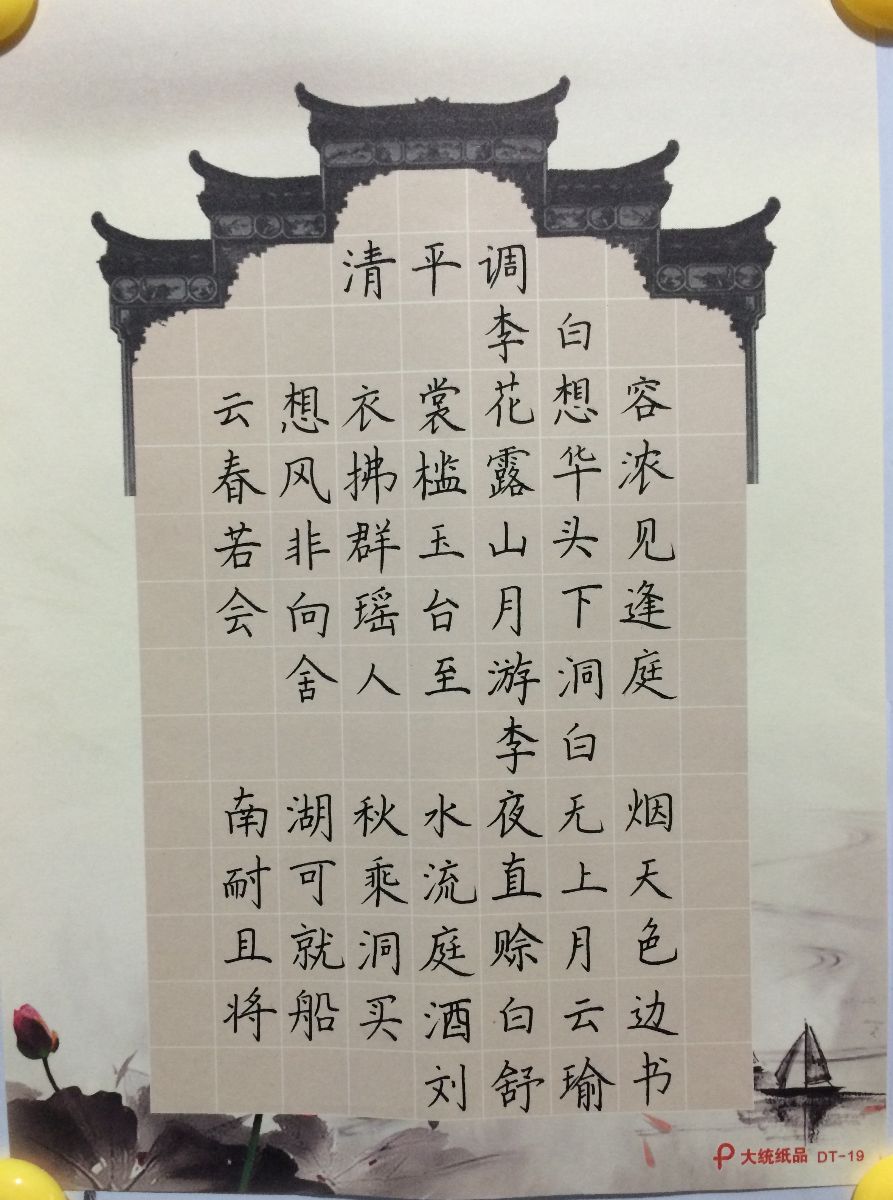 清平调
李白
云想衣裳花想容
春风拂槛露华浓
若非群玉山头见
会向瑶台月下逢
舍人至游洞庭
李白
南湖秋水夜无烟
耐可乘流直上天
且就洞庭赊月色
将船买酒白云边
刘舒瑜书
大统纸品 DT-19